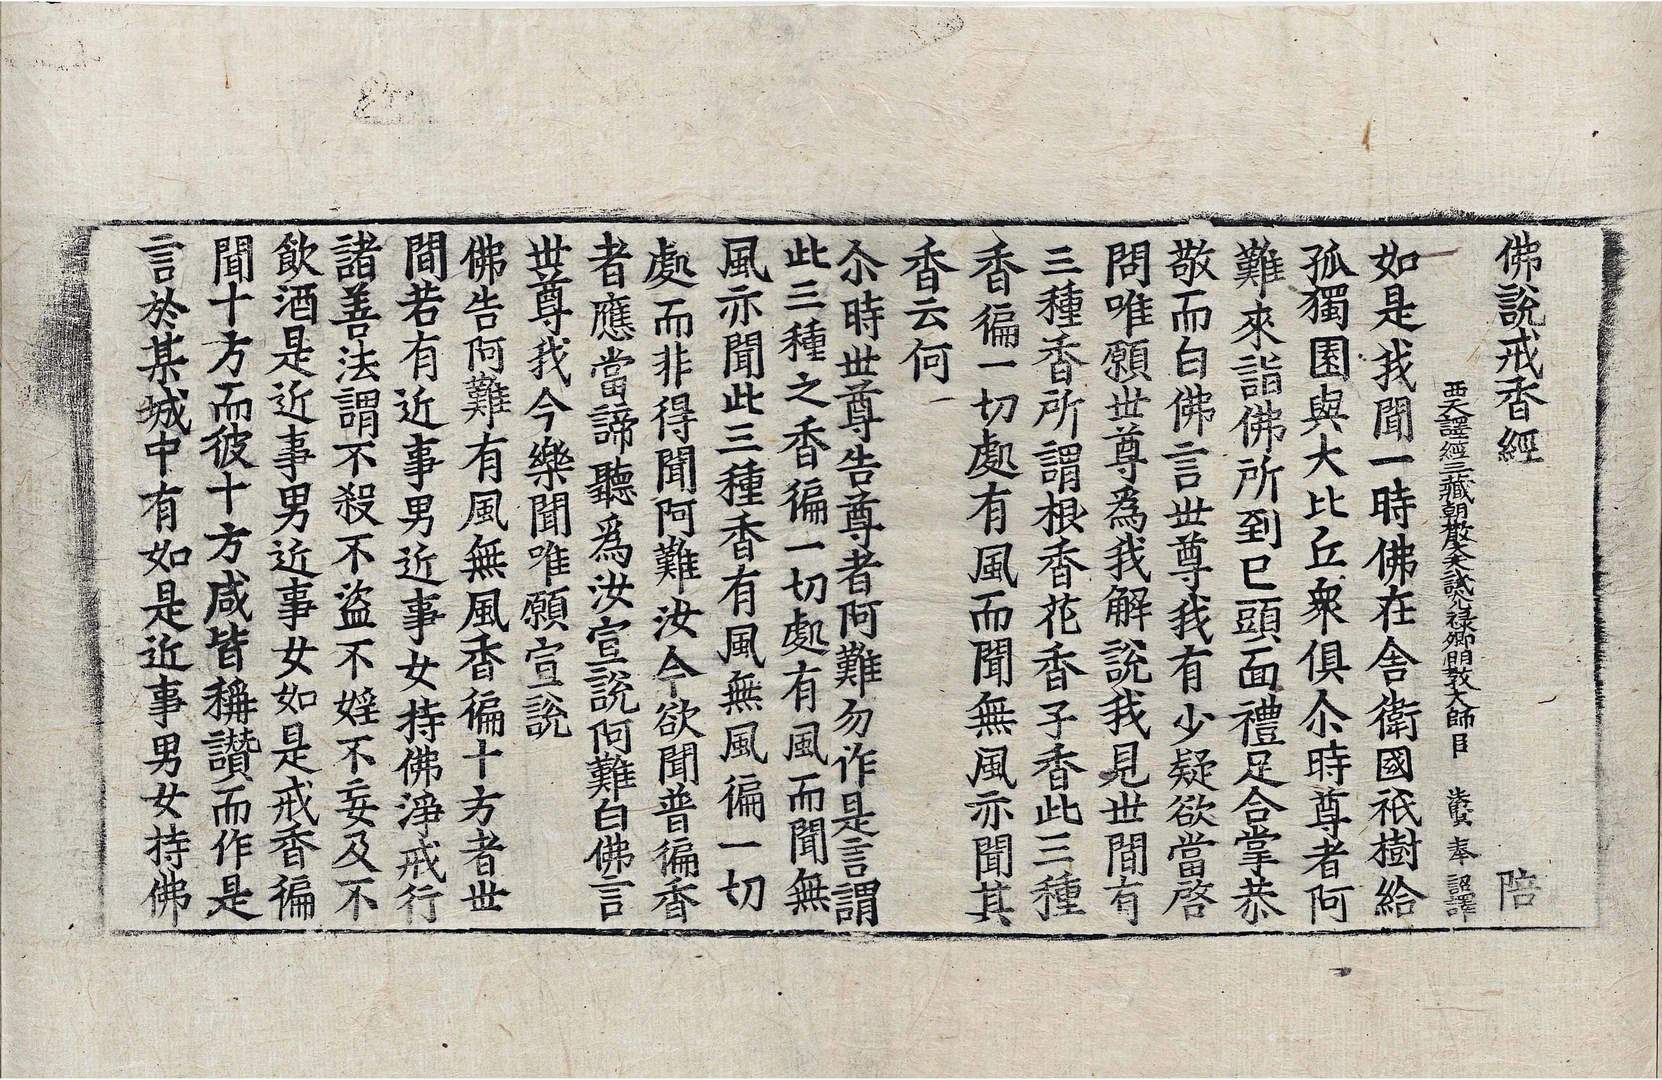 佛說戒香經 陪
西天譯經三藏朝散大夫試光祿卿明教大師臣 法賢奉 詔譯
如是我聞一時佛在舍衛國祇樹給
孤獨園與大比丘衆俱尒時尊者阿
難來詣佛所到已頭面禮足合掌恭
敬而白佛言世尊我有少疑欲當啓
問唯願世尊爲我解說我見世間有
三種香所謂根香花香子香此三種
香徧一切處有風而聞無風亦聞其
香云何
尒時世尊告尊者阿難勿作是言謂
此三種之香徧一切處有風而聞無
風亦聞此三種香有風無風徧一切
處而非得聞阿難汝今欲聞普徧香
者應當諦聽爲汝宣說阿難白佛言
世尊我今樂聞唯願宣說
佛告阿難有風無風香徧十方者世
間若有近事男近事女持佛淨戒行
諸善法謂不殺不盜不婬不妄及不
飲酒是近事男近事女如是戒香徧
聞十方而彼十方咸皆稱讚而作是
言於某城中有如是近事男女持佛